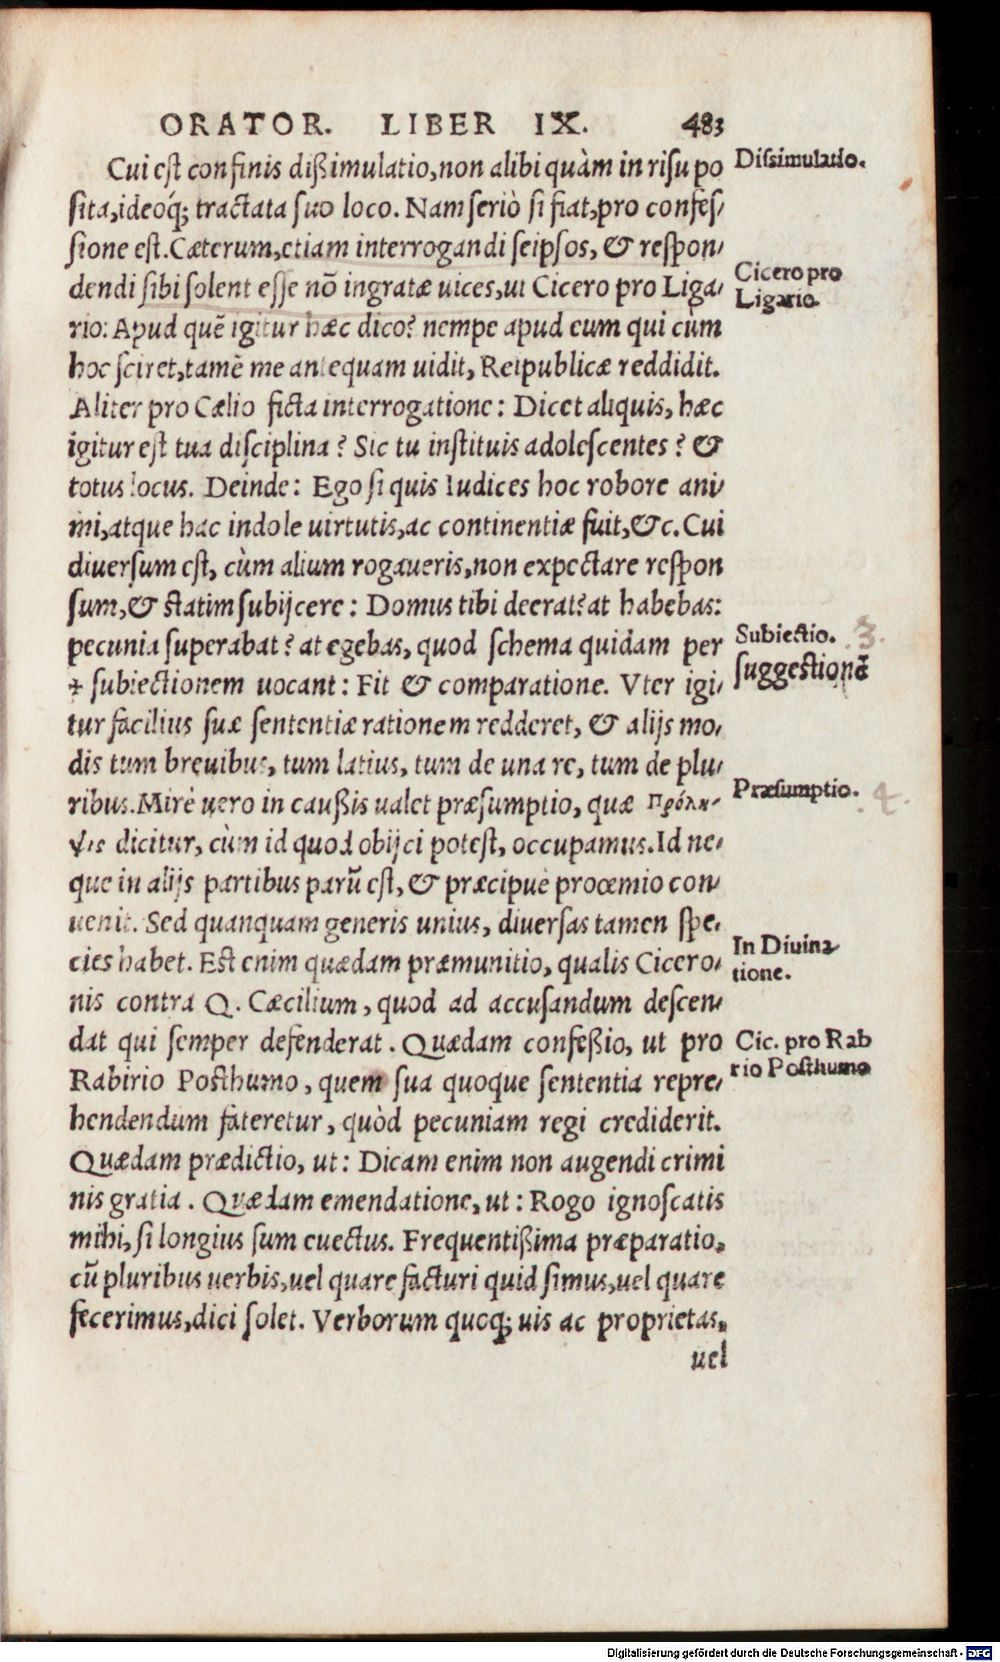 ORATOR. LIBER IX. 483
Cui est confinis dißimulatio, non alibi quàm in risu po
sita, ideoq́; tractata suo loco. Nam seriò si fiat, pro confes-
sione est. Cæterum, etiam interrogandi seipsos, & respon-
dendi sibi solent esse nõ ingratæ uices, ut Cicero pro Liga-
rio: Apud quẽ igitur hæc dico? nempe apud eum qui cùm
hoc sciret, tamẽ me antequam uidit, Reipublicæ reddidit.
Aliter pro Cælio ficta interrogatione: Dicet aliquis, hæc
igitur est tua disciplina? Sic tu instituis adolescentes? &
totus locus. Deinde: Ego si quis Iudices hoc robore ani-
mi, atque hac indole uirtutis, ac continentiæ fuit, &c. Cui
diuersum est, cùm alium rogaueris, non expectare respon
sum, & statim subijcere: Domus tibi deerat? at habebas:
pecunia superabat? at egebas, quod schema quidam per
+ subiectionem uocant: Fit & comparatione. Vter igi-
tur facilius suæ sententiæ rationem redderet, & alijs mo-
dis tum breuibus, tum latius, tum de una re, tum de plu-
ribus. Mirè uero in caußis ualet præsumptio, quæ πρόλη-
ψις dicitur, cùm id quod obijci potest, occupamus. Id ne-
que in alijs partibus parũ est, & præcipuè procemio con-
uenit. Sed quanquam generis unius, diuersas tamen spe-
cies habet. Est enim quædam præmunitio, qualis Cicero-
nis contra Q. Cæcilium, quod ad accusandum descen-
dat qui semper defenderat. Quædam confeßio, ut pro
Rabirio Posthumo, quem sua quoque sententia repre-
hendendum fateretur, quòd pecuniam regi crediderit.
Quædam prædictio, ut: Dicam enim non augendi crimi
nis gratia. Quædam emendatione, ut: Rogo ignoscatis
mihi, si longius sum euectus. Frequentißima præparatio,
cũ pluribus uerbis, uel quare facturi quid simus, uel quare
fecerimus, dici solet. Verborum quoq; uis ac proprietas,
uel
Dissimulatio.
Cicero pro
Ligario.
Subiectio. 3.
suggestionẽ
Præsumptio. 4.
In Diuina-
tione.
Cic. pro Rab
rio Posthumo
Digitalisierung gefördert durch die Deutsche Forschungsgemeinschaft - DFG